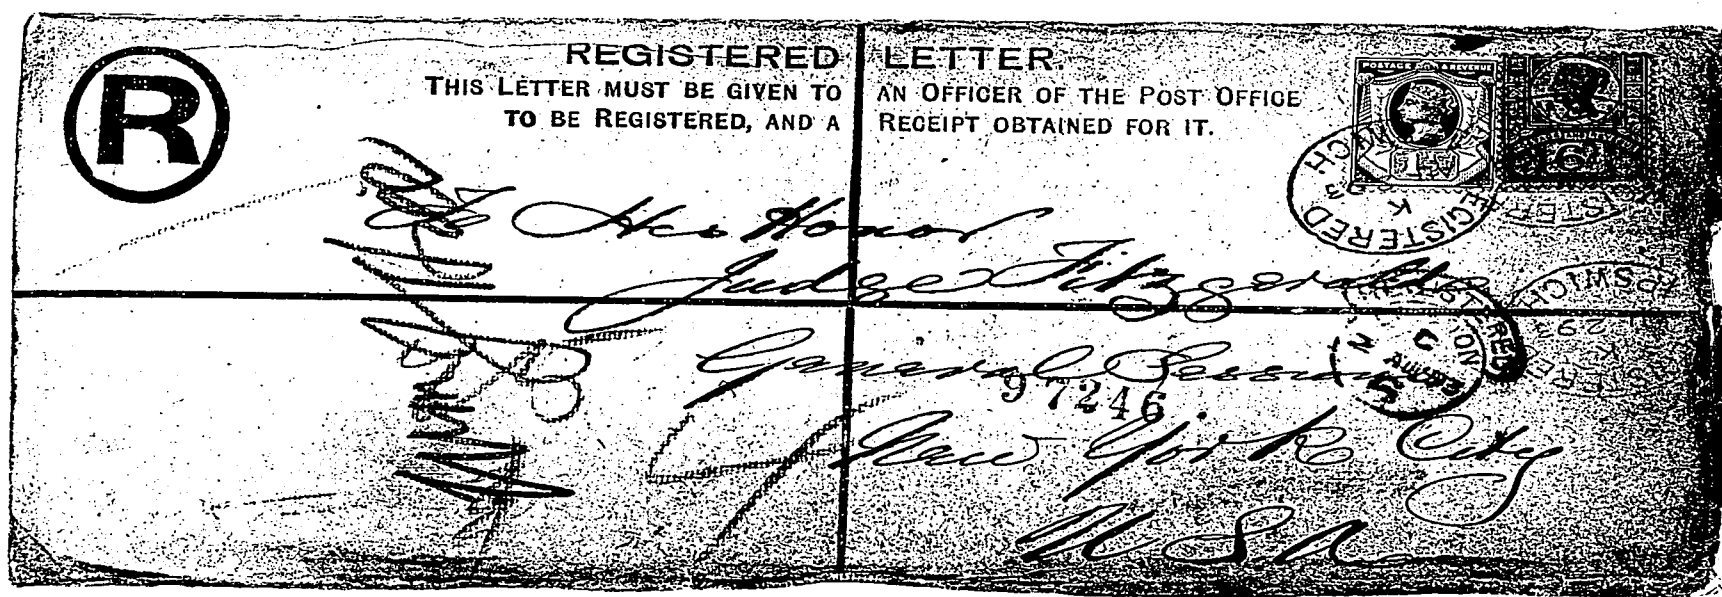 REGISTERED LETTER.
THIS LETTER MUST BE GIVEN TO AN OFFICER OF THE POST OFFICE
TO BE REGISTERED, AND A RECEIPT OBTAINED FOR IT.
R
POSTAGE & REVENUE
REGISTERED
To His Honor
Judge Fitzgerald
General Sessions
97246
New York City
U S A